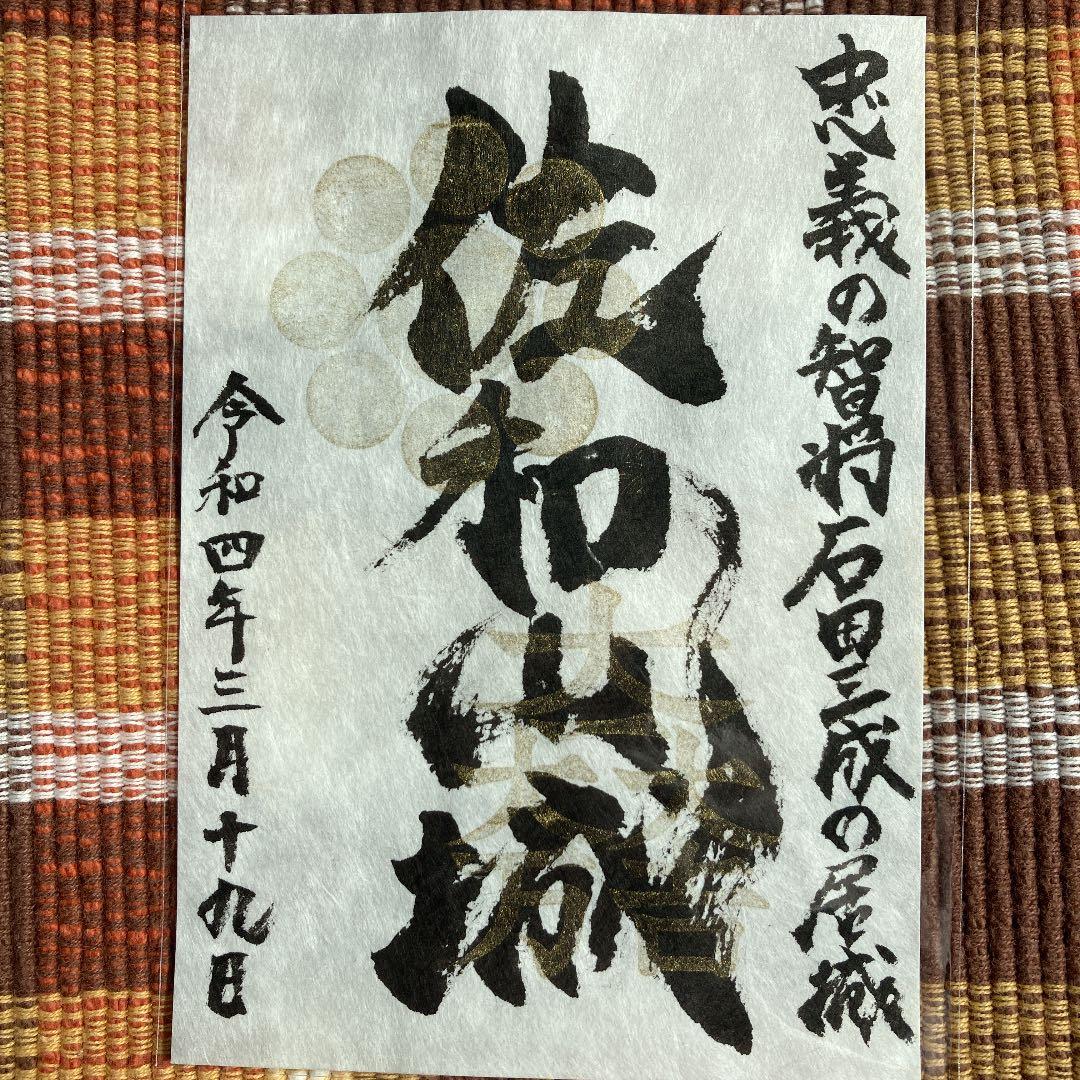 忠義の智将石田三成の居城
佐和山城
大一大万大吉
令和四年三月十九日